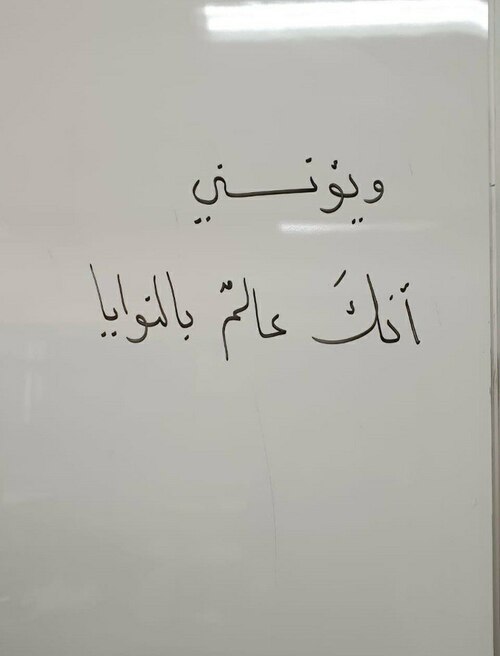 ويؤنسني
أنكَ عالمٌ بالنوايا